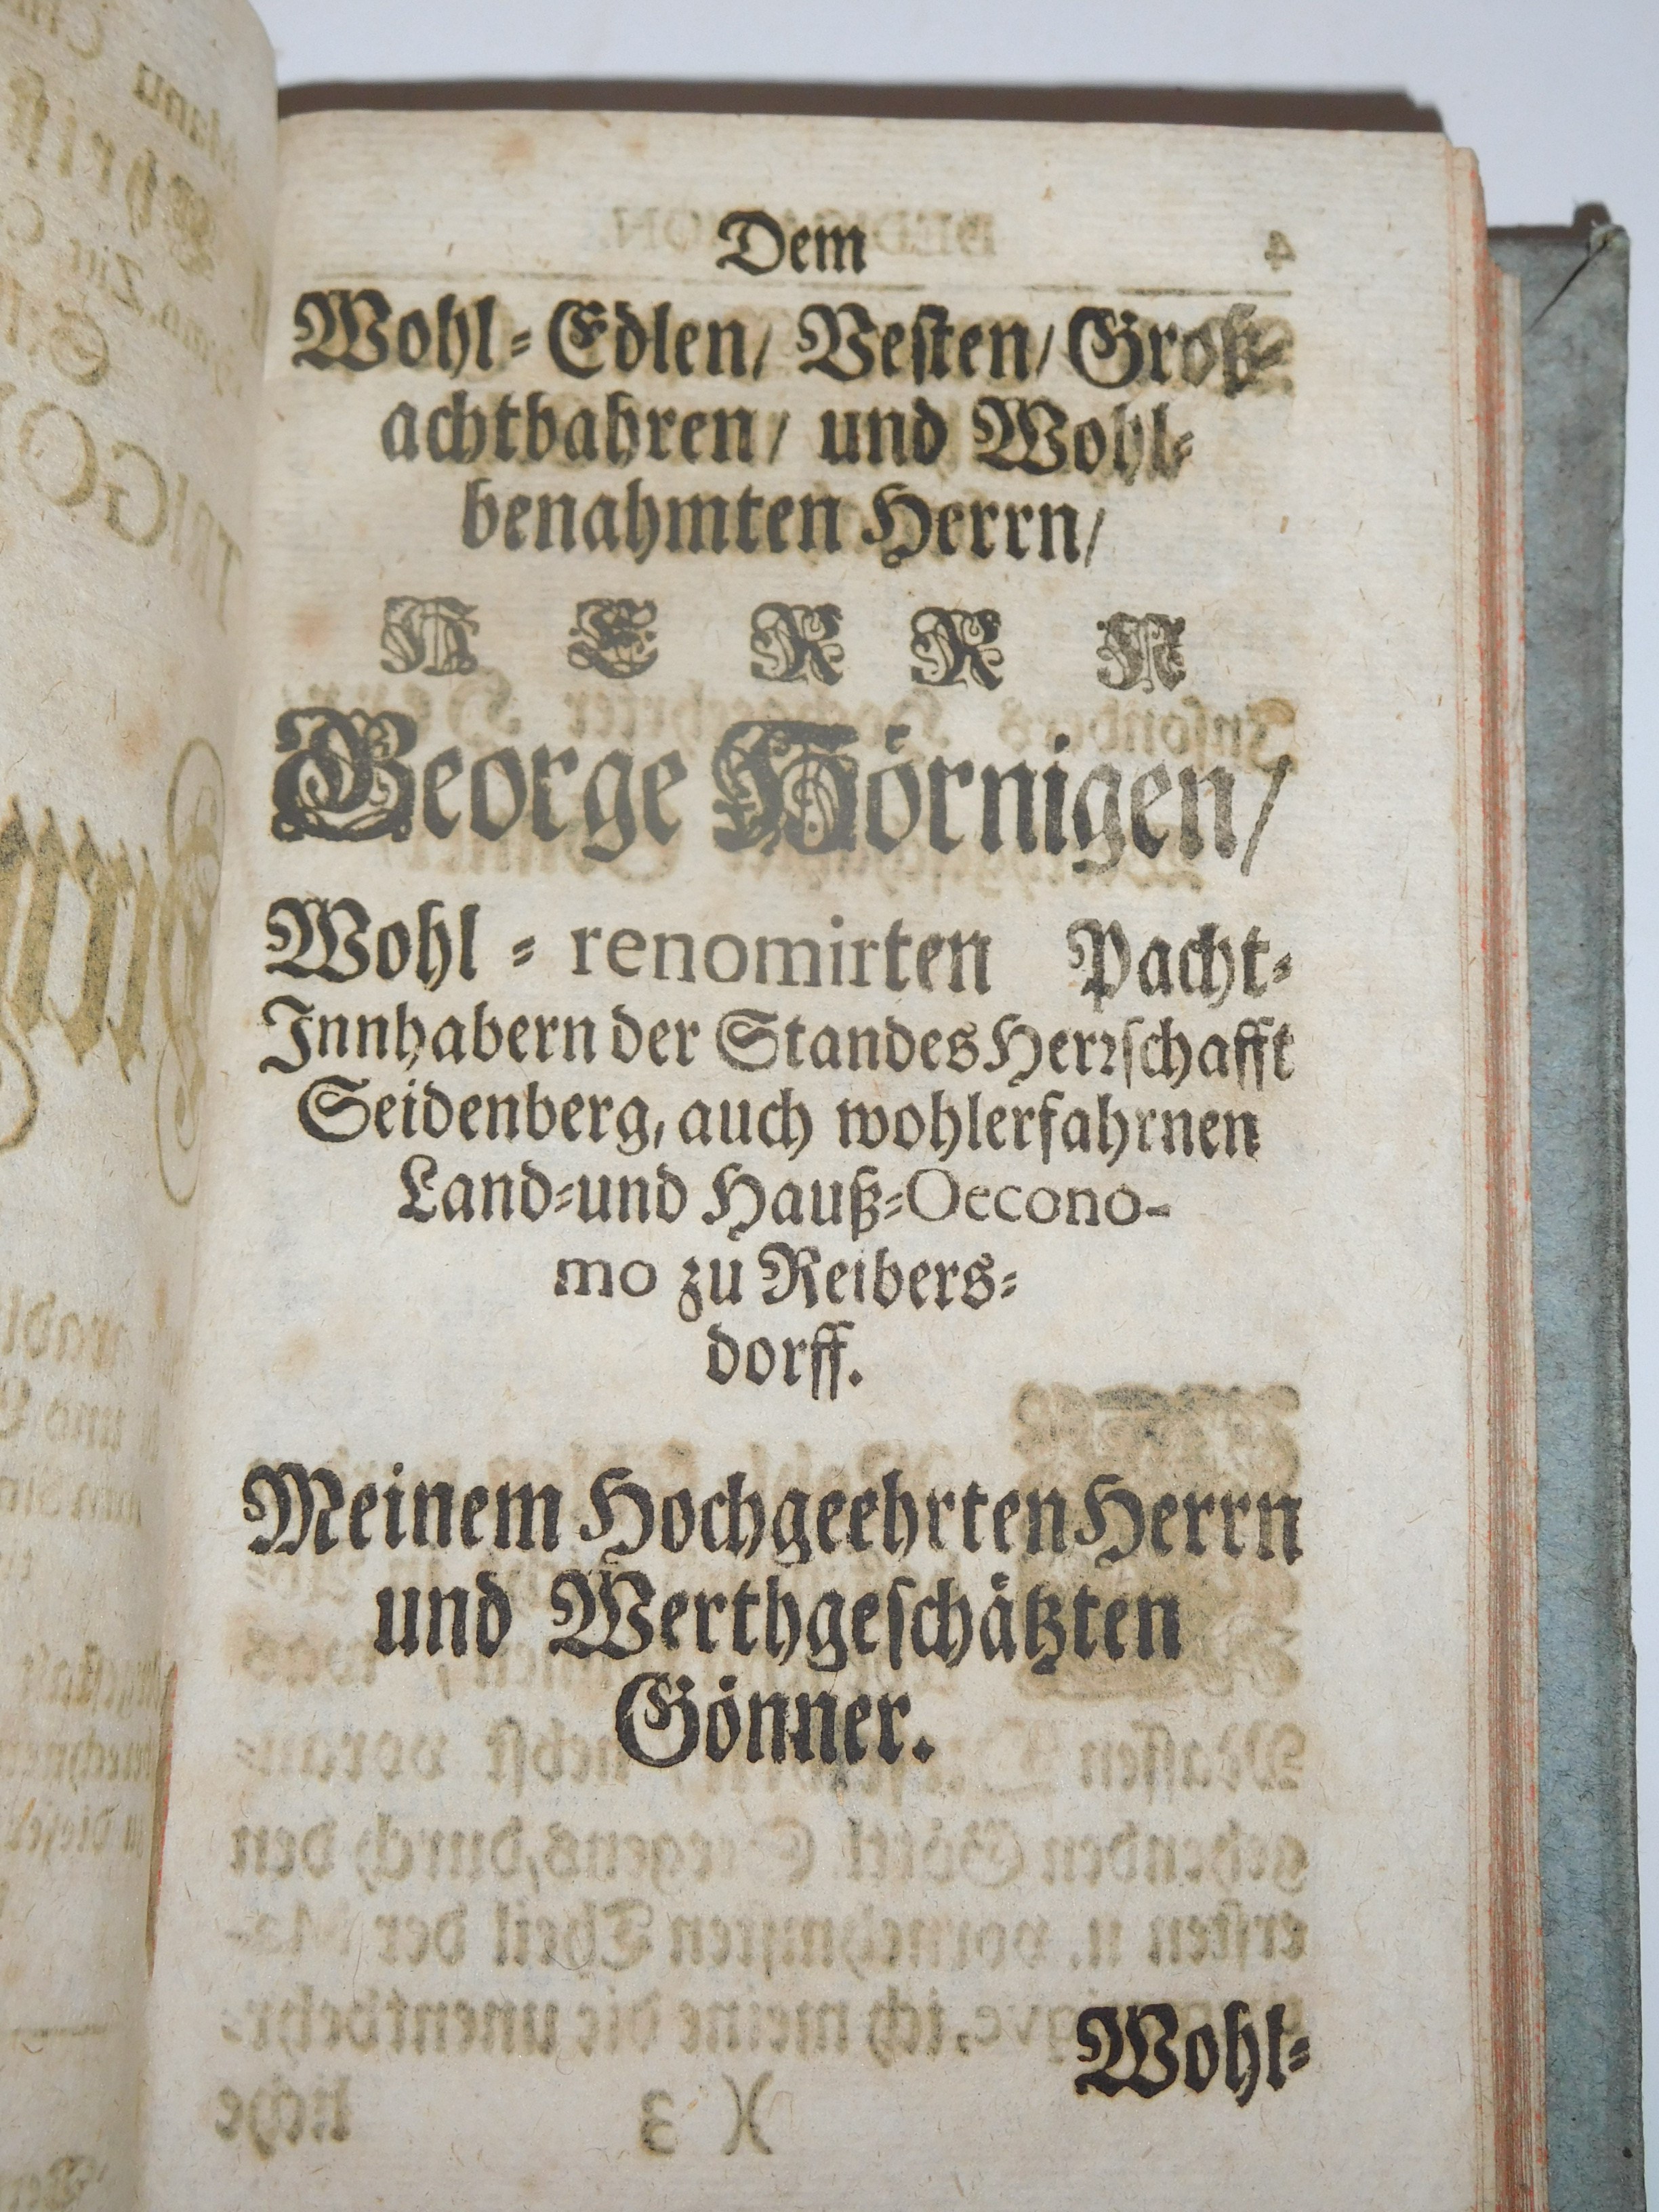 Dem
Wohl-Edlen/ Vesten/ Groß-
achtbahren/ und Wohl-
benahmten Herrn/
HERRN
George Hörnigen/
Wohl-renomirten Pacht-
Innhabern der Standes Herrschafft
Seidenberg, auch wohlerfahrnen
Land-und Hauß-Oecono-
mo zu Reibers-
dorff.
Meinem Hochgeehrten Herrn
und Werthgeschätzten
Gönner.
Wohl-